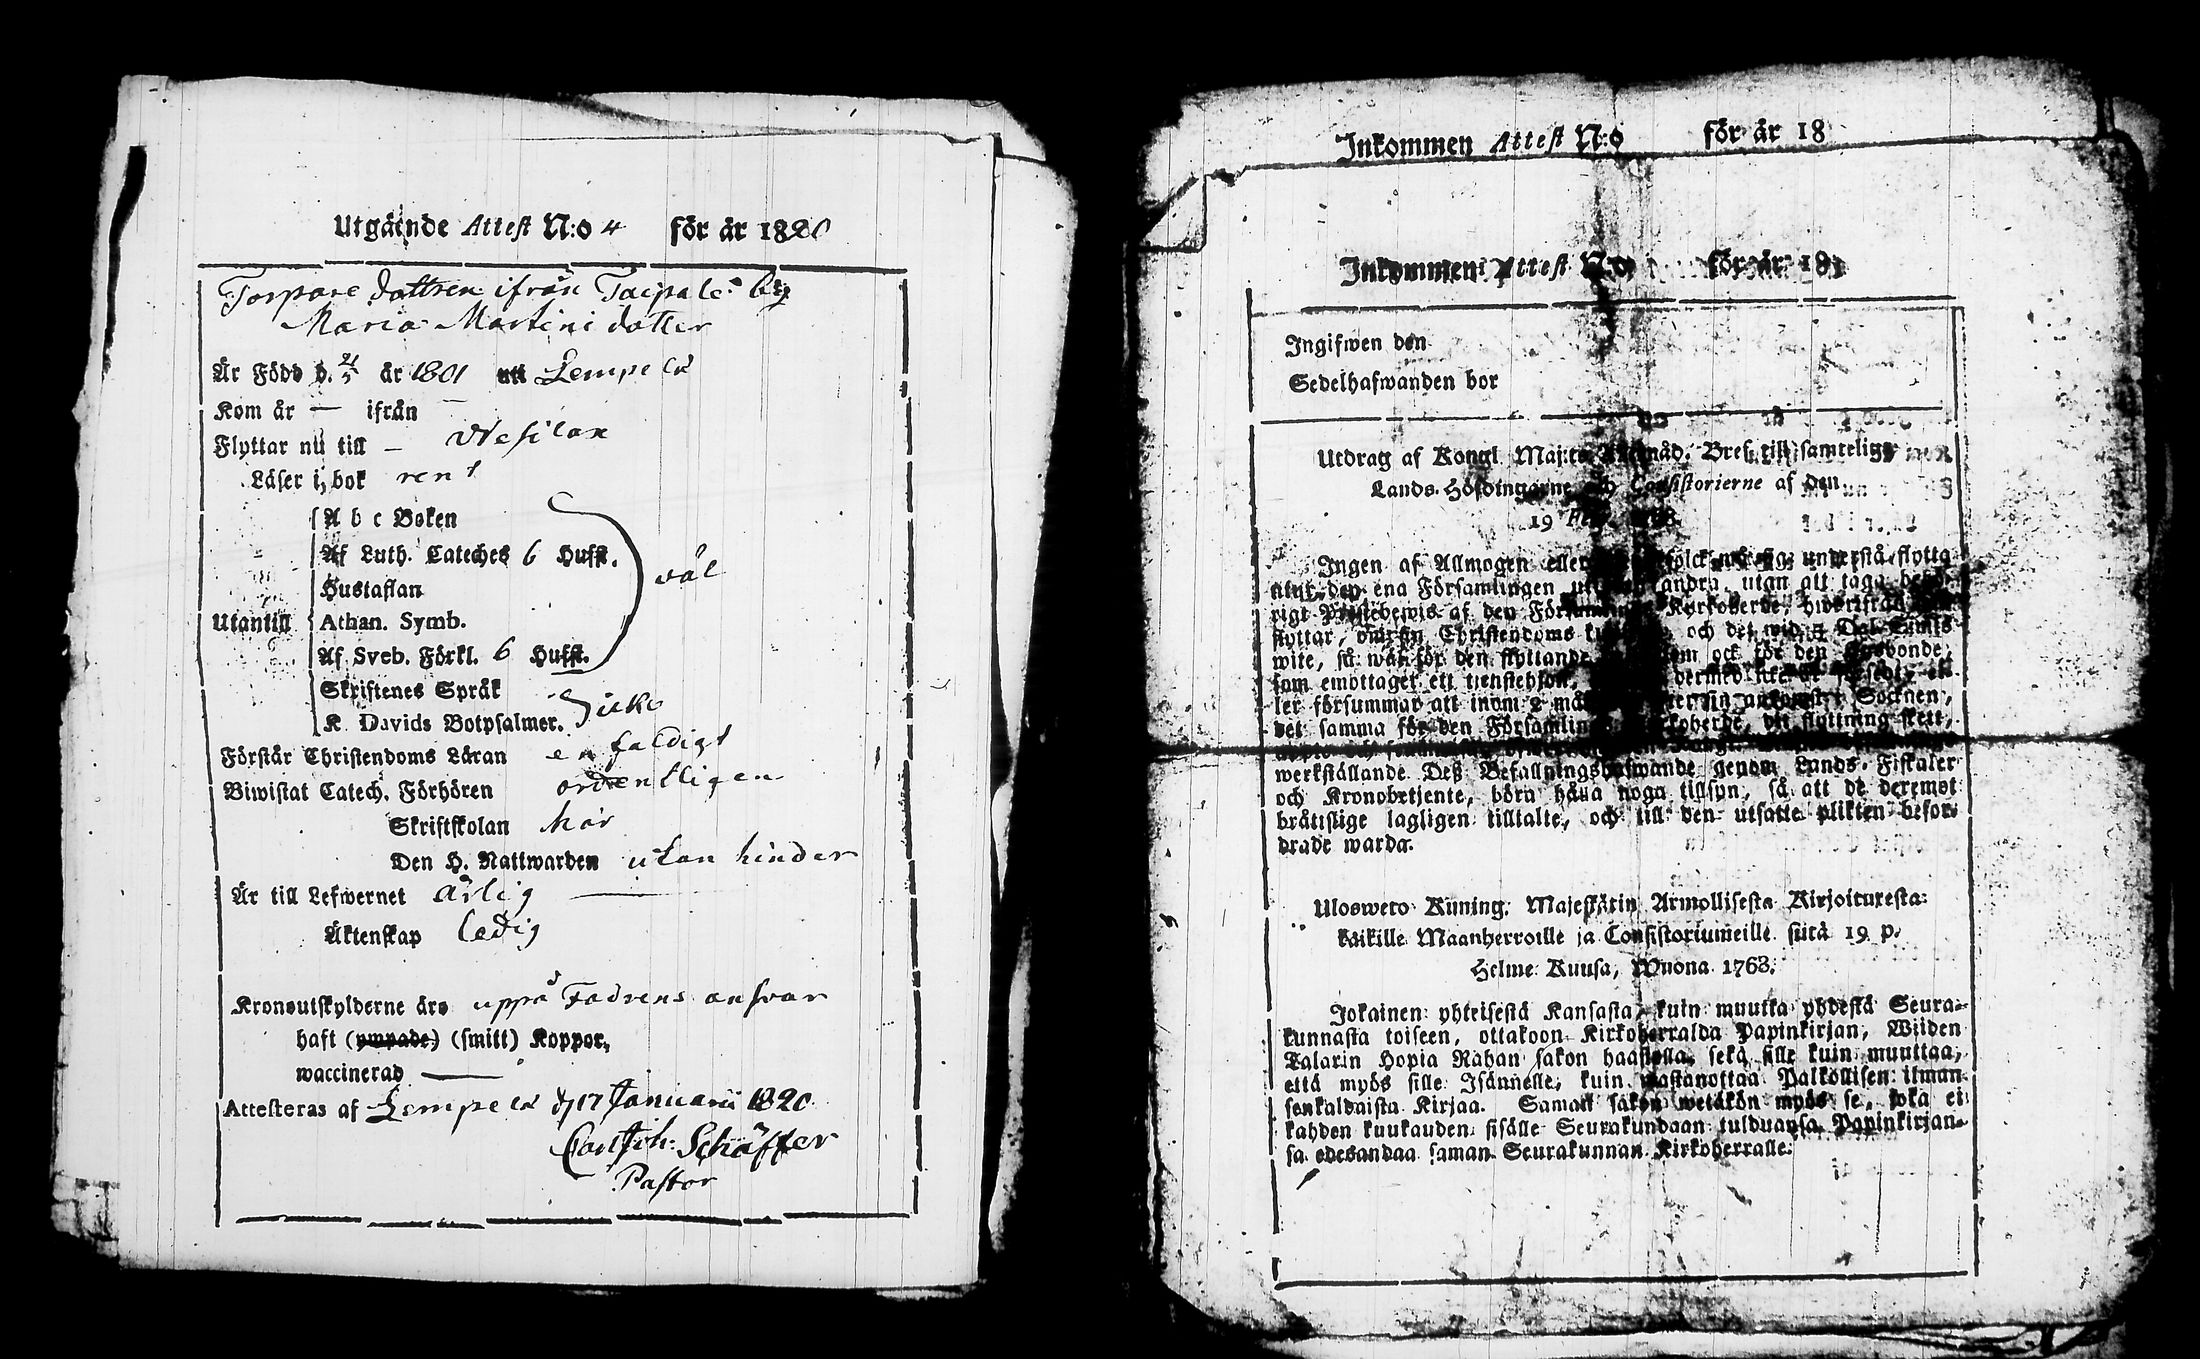 Utgående Attest N:o 4 för år 1820
Torpare dottren ifrån Taipale by
Maria Martini dotter
Är Född d. 21/5 år 1801 uti Lempelä
Kom år — ifrån —
Flyttar nu till — Wesilax
Läser i bok rent
A b c Boken
Af Luth. Cateches 6 Hufst.
Hustaflan
väl
Utantill
Athan. Symb.
Af Sveb. Förkl. 6 Hufst.
Skriftenes Språk
K. Davids Botpsalmer.
Förstår Christendoms Läran enfaldigt
Biwistat Catech. Förhören ordentligen
Skriftskolan här
Den H. Nattwarden utan hinder
Är till Lefwernet ärlig —
Äktenskap ledig
Kronoutskylderne äro uppå Fadrens answar
haft (ympade) (smitt) Koppor,
waccinerad —
Attesteras af Lempelä d. 17 Januarii 1820
Schäffer
Pastor
Inkommen Attest N:o för år 18
Inkommen Attest N:o för år 18
Ingifwen den
Sedelhafwanden bor
Utdrag af Kongl. Maj:ts Bref till samtelige
Lands-Höfdingarne och Consistorierne af den
19
Ingen af Allmogen eller understå flytta
den ena Församlingen andra, utan att taga
af den Kyrkoherde,
flyttar, om sin Christendoms och det wid Dal. Silfwers
wite, så wäl för den flyttande som ock för den Husbonde,
som emottager ett tienstehjon,
ler försummar att inom 2 sin ankomst i Socknen,
det samma för den Kyrkoherde, dit flyttning skett,
werkställande Deß Befallningshafwande genom Lands-Fiskaler
och Kronobetjente, böra hålla noga tillsyn, så att de deremot
bråttslige lagligen tilltalte, och till den utsatte plikten befor-
drade warda.
Ulosweto Kuning. Majestätin Armollisesta Kirjoituxesta
kaikille Maanherroille ja Consistoriumeille siitä 19 p.
Helme Kuusa, Wuona 1763.
Jokainen yhteisestä Kansasta, kuin muutta yhdestä Seura-
kunnasta toiseen, ottakoon Kirkoherralda Papinkirjan, Wiiden
Talarin Hopia Rahan sakon haastolla, sekä sille kuin muuttaa,
että myös sille Isännelle, kuin wastanottaa Palkollisen ilman
senkaldaista Kirjaa. Saman sakon wetäkön myös se, joka ei
kahden kuukauden sisälle Seurakundaan tulduansa Papinkirjan-
sa edesandaa saman Seurakunnan Kirkoherralle.